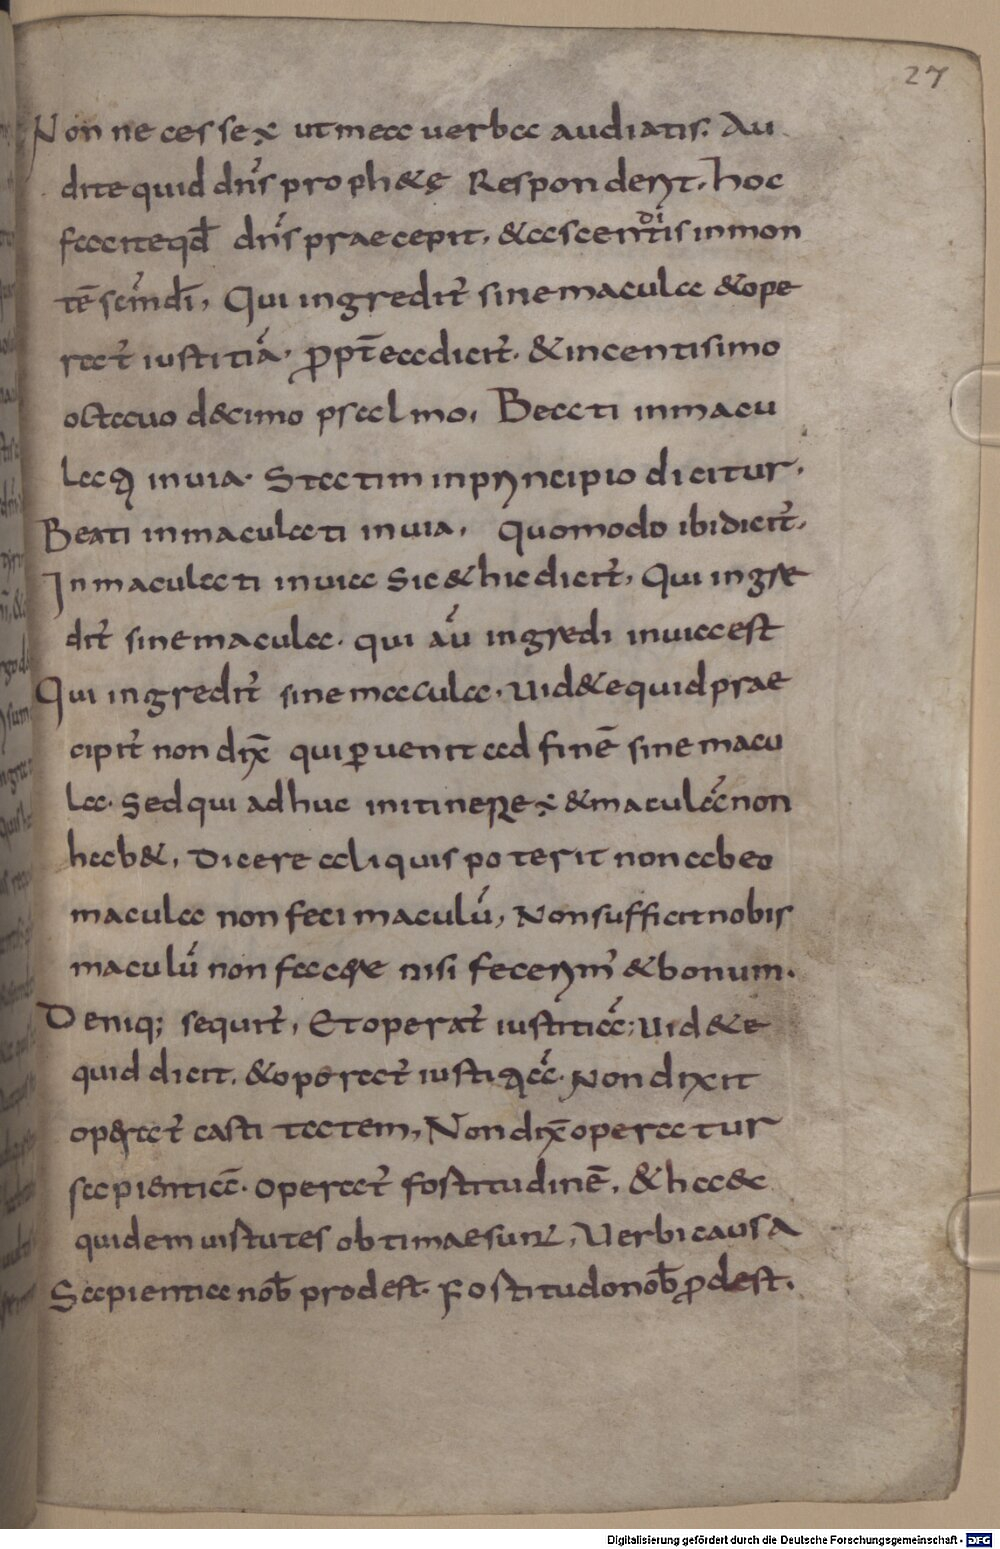 27
Non necesse÷ ut mea uerba audiatis. Au
dite quid dn̄s proph&ę Respondent. hoc
facite qd̄ dn̄s praecepit. &ascentdı̄tis in mon
tē scm̄ dı̄, Qui ingredit̄ sine macula &ope
rat̄ iustitiā. ꝓpt̄ea dicit̄. &in centisimo
octauo d&cimo psalmo, Beati inmacu
lati in uia. Statim in principio dicitur.
Beati inmaculati in uia. Quomodo ibi dicit̄.
Inmaculati in uia Sic & hic dicit̄, Qui ingre
dit̄ sine macula. qui aū ingredi in uia est
Qui ingredit̄ sine macula. Uid&e quid prae
cipit̄ non dix̄ qui ꝑuenit ad finē sine macu
la. Sed qui adhuc in itinere÷ & maculā non
hab&, Dicere aliquis poterit non abeo
macula non feci maculū, Non sufficit nobis
maculū non facere nisi fecerim̄ & bonum.
Deniq; sequit̄, Et operat̄ iustitiā; Uid&e
quid dicit. &operat̄ iustitiā. Non dixit
operat̄ castitatem, Non dix̄ operatur
sapientiā. operat̄ fortitudinē. & haec
quidem uirtutes obtimae sunt, Uerbi causa
Sapientia nob̄ prodest. Fortitudo nob̄ ꝓdest.
Digitalisierung gefördert durch die Deutsche Forschungsgemeinschaft - DFG